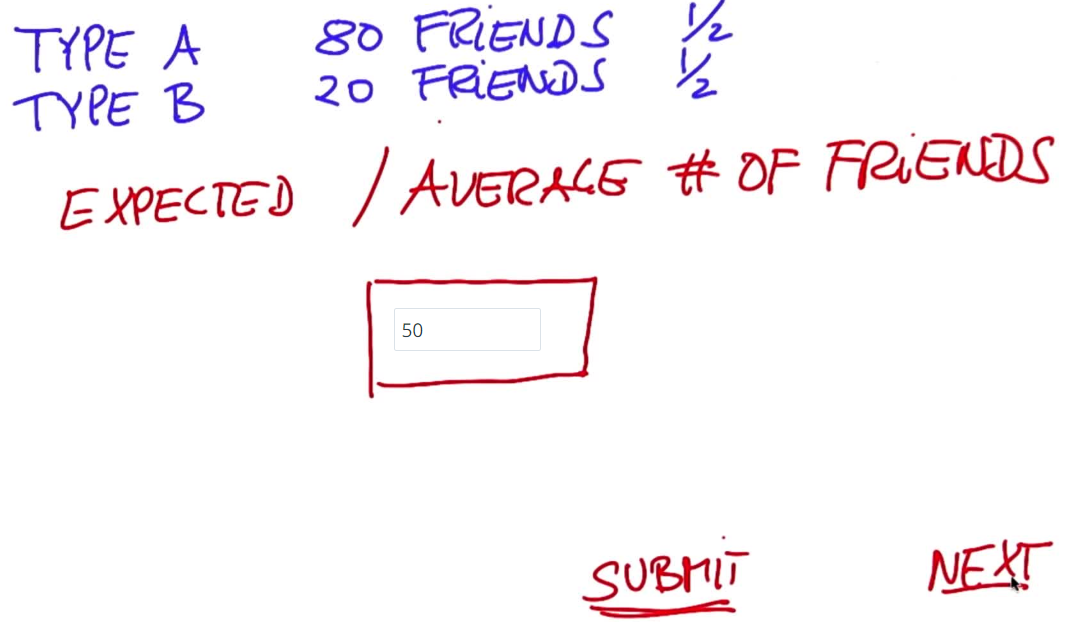 TYPE A 80 FRiENDS 1/2
TYPE B 20 FRiENDS 1/2
EXPECTED / AVERAGE # OF FRiENDS
50
SUBMiT NEXT